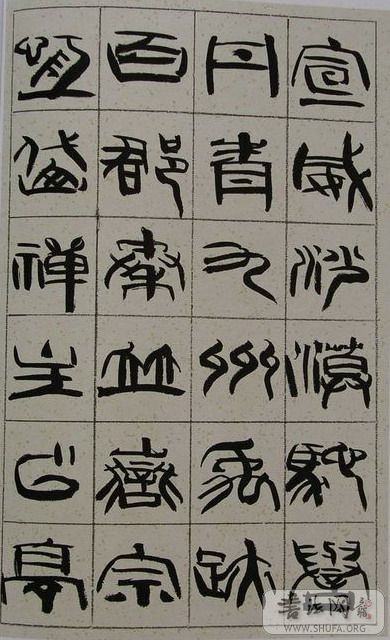 宣威沙漠馳譽
丹青九州禹跡
百郡秦並嶽宗
恆岱禪主云亭
WWW.SHUFA.ORG